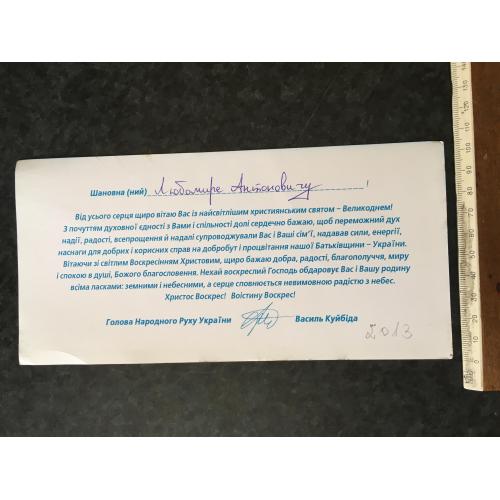 Шановна (ний) Любомире Антоновичу !
Від усього серця щиро вітаю Вас із найсвітлішим християнським святом – Великоднем!
З почуттям духовної єдності з Вами і спільності долі сердечно бажаю, щоб переможний дух
надії, радості, всепрощення й надалі супроводжували Вас і Ваші сім’ї, надавав сили, енергії,
наснаги для добрих і корисних справ на добробут і процвітання нашої Батьківщини – України.
Вітаючи зі світлим Воскресінням Христовим, щиро бажаю добра, радості, благополуччя, миру
і спокою в душі, Божого благословення. Нехай воскреслий Господь обдаровує Вас і Вашу родину
всіма ласками: земними і небесними, а серце сповнюється невимовною радістю з небес.
Христос Воскрес! Воістину Воскрес!
Голова Народного Руху України Василь Куйбіда
2013